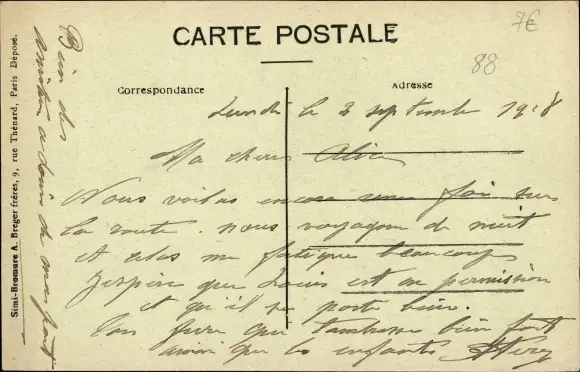 7€
CARTE POSTALE
88
Correspondance
Adresse
Lundi le 2 septembre 1918
Ma chere Alice
Nous voilas encore une fois sur
la route. nous voyageon de nuit
et celas me fatigue beaucoup
J'espere que Louis est en permission
et qu'il se porte bien.
Ton frere que t'embrasse bien fort
ainsi que les enfants
Bien des
a Louis de ma part
Simi-Bromure A. Breger frères, 9, rue Thénard, Paris Déposé.